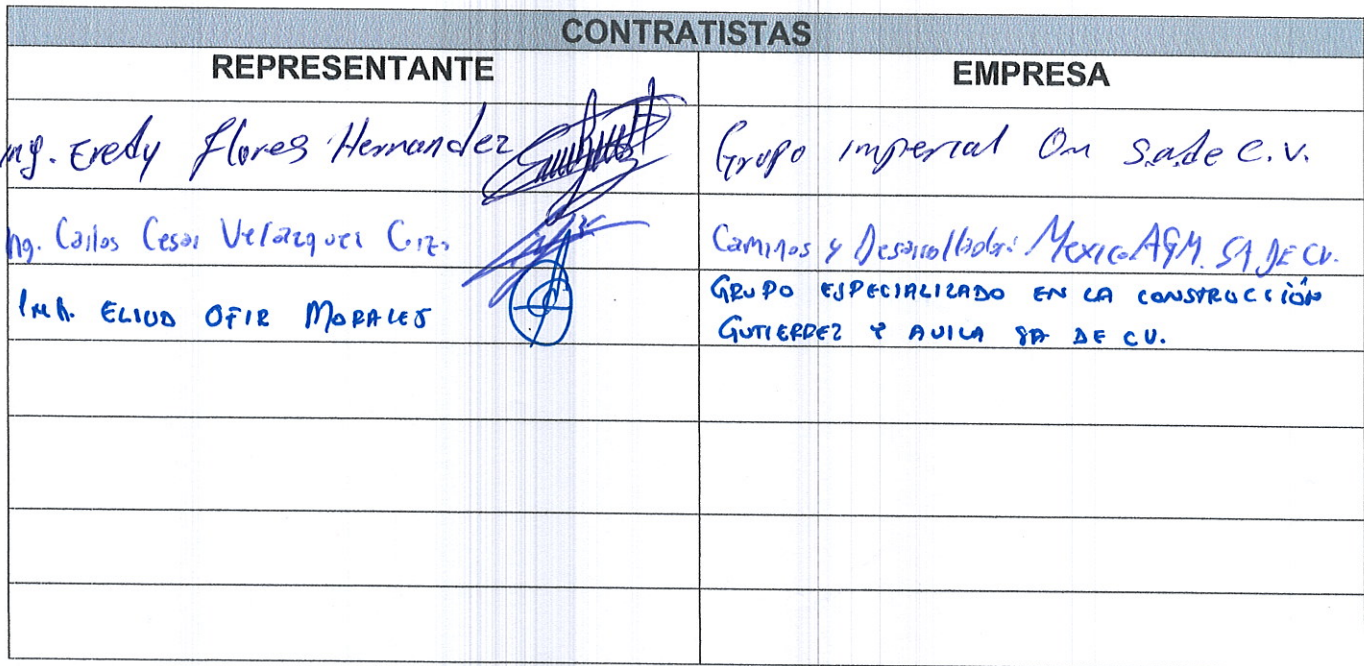 CONTRATISTAS
REPRESENTANTE EMPRESA
Ing. Eredy Flores Hernandez Grupo imperial Om S.a de C.V.
Ing. Carlos Cesar Velazquez Caminos y Desarrollador México AGM. SA DE CV.
Ing. ELIUD OFIR MORALES GRUPO ESPECIALIZADO EN LA CONSTRUCCIÓN
GUTIERREZ Y AVILA SA DE CV.